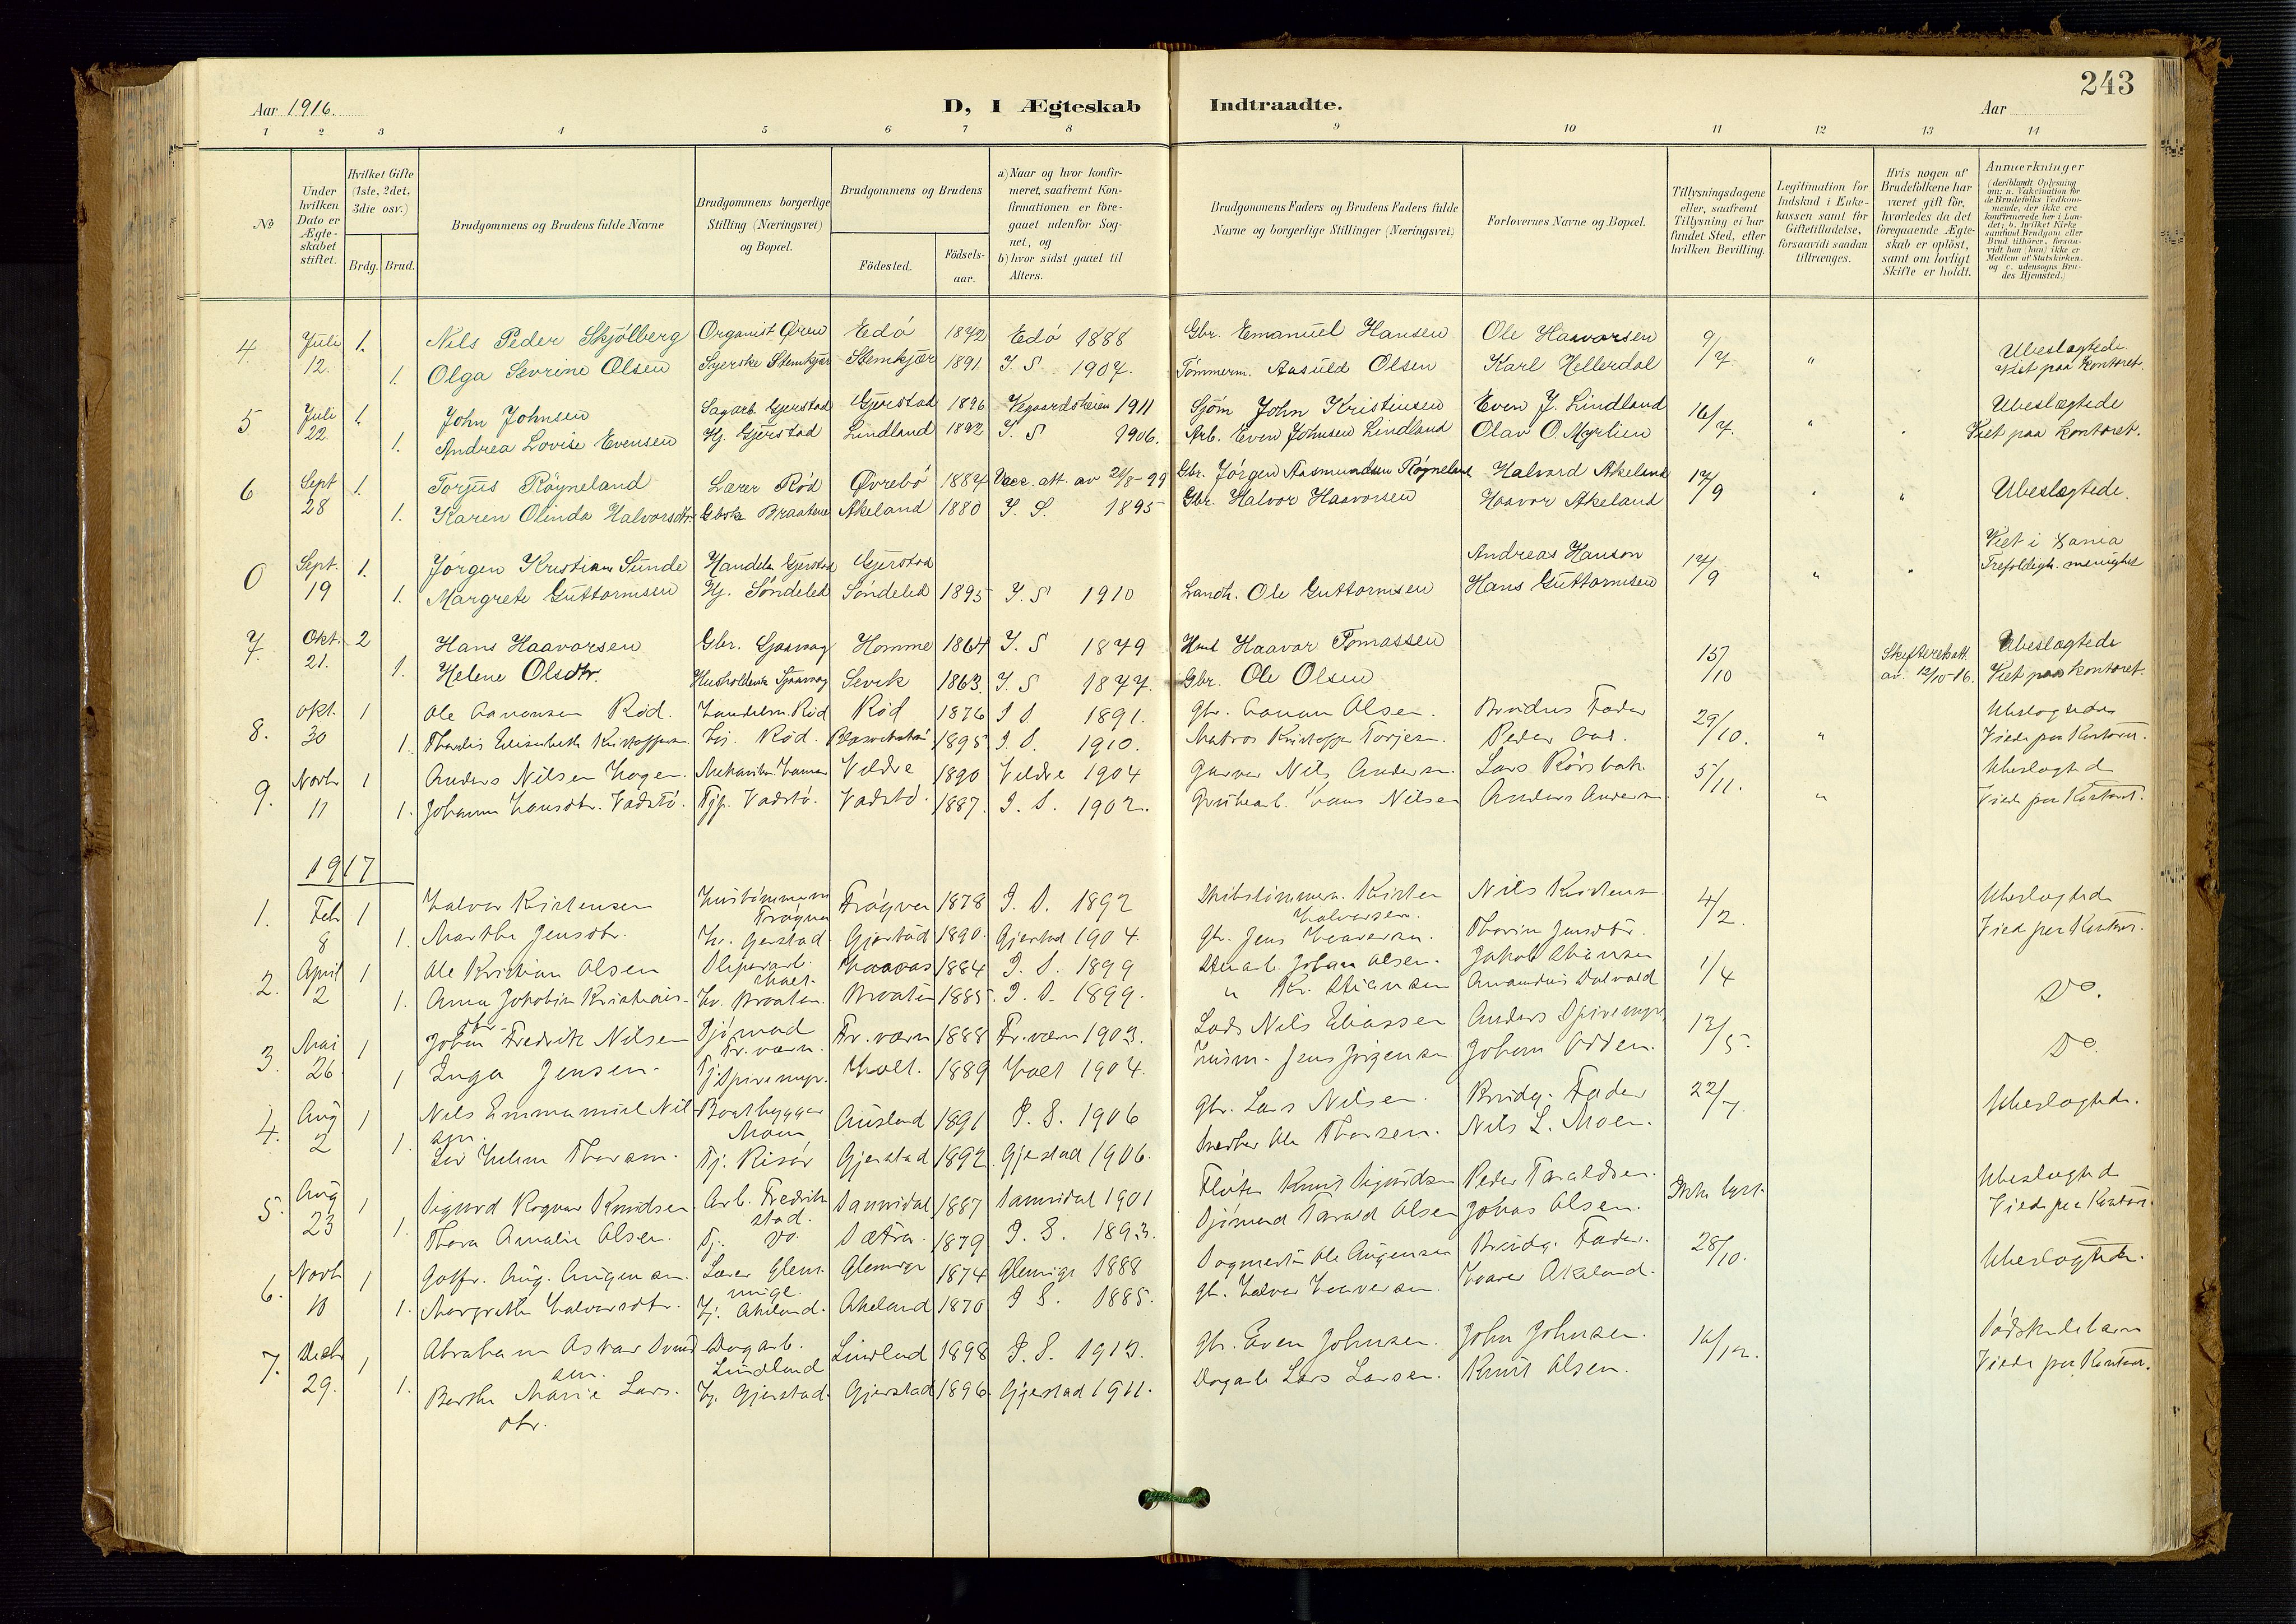 243
Aar 1916.
D, I Ægteskab Indtraadte.
Aar
1 2 3 4 5 6 7 8 9 10 11 12 13 14
No
Under hvilken Dato er Ægteskabet stiftet.
Hvilket Gifte (1ste, 2det, 3die osv.)
Brdg. Brud.
Brudgommens og Brudens fulde Navne
Brudgommens borgerlige Stilling (Næringsvei) og Bopæl.
Brudgommens og Brudens
Födested.
Födsels-aar.
a) Naar og hvor konfirmeret, saafremt Konfirmationen er foregaaet udenfor Sognet, og
b) hvor sidst gaaet til Alters.
Brudgommens Faders og Brudens Faders fulde Navne og borgerlige Stillinger (Næringsvei)
Forlovernes Navne og Bopæl.
Tillysningsdagene eller, saafremt Tillysning ei har fundet Sted, efter hvilken Bevilling.
Legitimation for Indskud i Enkekassen samt for Giftetilladelse, forsaavidt saadan tiltrænges.
Hvis nogen af Brudefolkene har været gift för, hvorledes da det foregaaende Ægteskab er oplöst, samt om lovligt Skifte er holdt.
Anmærkninger (deriblandt Oplysning om: a. Vakcination for de Brudefolks Vedkommende, der ikke ere konfirmerede her i Landet; b. hvilket Kirkesamfund Brudgom eller Brud tilhörer, forsaavidt han (hun) ikke er Medlem af Statskirken. og c. udensogns Brudes Hjemsted.)
4 Juli 1. Nils Peder Skjölberg Organist Øren Edö 1872 Edö 1888 Gbr. Emanuel Hansen Ole Haavorsen 9/7 " Ubeslægtede
12. 1. Olga Sevrine Olsen Syerske Stemkjær Stemkjær 1891 I. S. 1907. Tömmerm. Aasuld Olsen Karl Hellerdal Viet paa kontoret.
5 Juli 1. John Johnsen Sagarb. Gjerstad Gjerstad 1896 Vegaardsheien 1911 Sjöm John Kristensen Even J. Lindland 16/7. " Ubeslægtede
22. 1. Andrea Lovise Evensen Hj. Gjerstad Lindland 1892 I. S 1906. Arb. Even Johnsen Lindland Olav O. Myrlien Viet paa kontoret.
6 Sept 1. Torjus Röyneland Lærer Röd Øvrebö 1884 Vacc. att. av 26/8-99 Gbr. Jörgen Aasmundsen Röyneland Halvord Akeland 17/9 Ubeslægtede.
28 1. Karen Olinda Halvorsdtr Gbske Braatene Akeland 1880 I. S. 1895 Gbr. Halvor Haavorsen Haavor Akeland
0 Sept. 1. Jörgen Kristian Sunde Handelm Gjerstad Gjerstad Andreas Hanson 17/9 " Viet i Xania
19 1. Margrete Guttormsen Hj. Söndeled Söndeled 1895 I. S 1910 Landh. Ole Guttormsen Hans Guttormsen Trefoldigh. menighet
7. Okt. 2 Hans Haavorsen Gbr. Sjaavaag Homme 1864 I. S 1879 Hmd Haavor Tomassen 15/10 Skifteretsatt. Ubeslægtede
21. 1. Helene Olsdtr. Husholderske Sjaavaag Sevik 1863. I. S 1877. Gbr. Ole Olsen av. 12/10-16. Viet paa kontoret.
8. Okt. 1 Ole Aanonsen Röd. Handelsm. Röd Röd 1876 I S. 1891. Gbr. Aanon Olsen. Brudens Fader 29/10. " Ubeslægtede
30 1. Thordis Elisabeth Kristoffersen Hj. Röd. 1895 I. S. 1910. Matros Kristoffer Torjesen. Peder Aas. Viede paa Kontoret.
9. Novbr 1 Anders Nilsen Hagen. Mekaniker Hamar Veldre 1890 Veldre 1904 Garver Nils Andersen. Lars Rörsbak 5/11. Ubeslægtede
11 1. Johanne Hansdtr. Vadstö. Tjp. Vadstö. Vadstö. 1887. I. S. 1902. Grubearb. Hans Nilsen Anders Andersen " Viede paa Kontoret.
1917
1. Feb 1 Halvor Kistensen Hustömmerm Fragvar Fröyna 1878 I. S. 1892 Skibstömmerm. Kisten Halvorsen. Nils Kistensen 4/2. Ubeslægtede
8 1. Marthe Jensdtr. Hv. Gjerstad. Gjerstad 1890. Gjerstad 1904. Gbr. Jens Haaversen. Thorine Jensdtr. Viede paa Kontor.
2. April 1 Ole Kristian Olsen Sliperarb. Holt. Haaaas 1884 I. S. 1899 Stenarb. Johan Olsen. Jakob Stiansen 1/4
2 1. Anna Jakobine Kristians-dtr. Hv. Braaten. Braaten 1885. I. S. 1899. " Kr. Stiansen Amandus Dalvold Do.
3. Mai 1 Johan Fredrik Nilsen Sjömand Fr. værn. Fr. værn 1888 Fr. værn 1903. Lods Nils Eliassen Anders Spiremyr 13/5.
26 1 Inga Jensen. Tj. Spiremyr. Holt. 1889 Holt 1904. Husm. Jens Jörgensen Johan Odden. Do.
4. Aug 1 Nils Emmanuel Nilsen. Baatbygger Moen Auslad 1891 I. S. 1906 Gbr. Lars Nilsen. Brudg. Fader 22/7. Ubeslægtede.
2 1. Liv Helene Thorsen. Tj. Risör Gjerstad 1892 Gjerstad 1906. Snedker Ole Thorsen. Nils L. Moen.
5. Aug 1 Sigurd Ragnar Knudsen Arb. Fredrikstad. Sannidal 1887 Sannidal 1901 Flöter Knut Sigurdsen Peder Taraldsen. Ikke lyst. Ubeslægted
23 1. Thora Amalie Olsen. Tj. Do. Sætra. 1879 I. S. 1893. Sjömand Tarald Olsen Johas Olsen. Viede paa Kontor.
6. Novb 1 Gotfr. Aug. Augensen. Lærer Glemmige. Glemige 1874 Glemige 1888 Sagmester Ole Augensen Brudg. Fader. 28/10. Ubeslægtede.
10 1. Margrethe Halvorsdtr. Hj. Akeland. Akeland 1870 I S. 1885. Gbr. Halvor Haaversen Haaver Akeland.
7. Decbr 1 Abraham Asvar Svendsen. Sagarb. Lindland Lindland 1898 I. S. 1913. Gbr. Even Johnsen. John Johnsen. 16/12. Södskendebarn
29. 1. Berthe Marie Larsdtr. Hj. Gjerstad. Gjerstad 1896 Gjerstad 1911. Sagarb Lars Larsen. Knut Olsen. Viede paa Kontor.